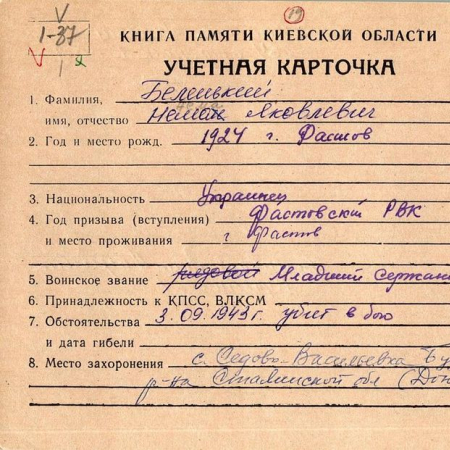 19
1-37
КНИГА ПАМЯТИ КИЕВСКОЙ ОБЛАСТИ
УЧЕТНАЯ КАРТОЧКА
1. Фамилия, Беленький
имя, отчество Яковлевич
2. Год и место рожд. 1924 г. Фастов
3. Национальность Украинец
4. Год призыва (вступления) Фастовский РВК
и место проживания г Фастов
5. Воинское звание рядовой Младший сержан
6. Принадлежность к КПСС, ВЛКСМ
7. Обстоятельства 3.09.1943г. убит в бою
и дата гибели
8. Место захоронения с. Седово-Васильевка Бу
р-на Сталинской обл (Дон